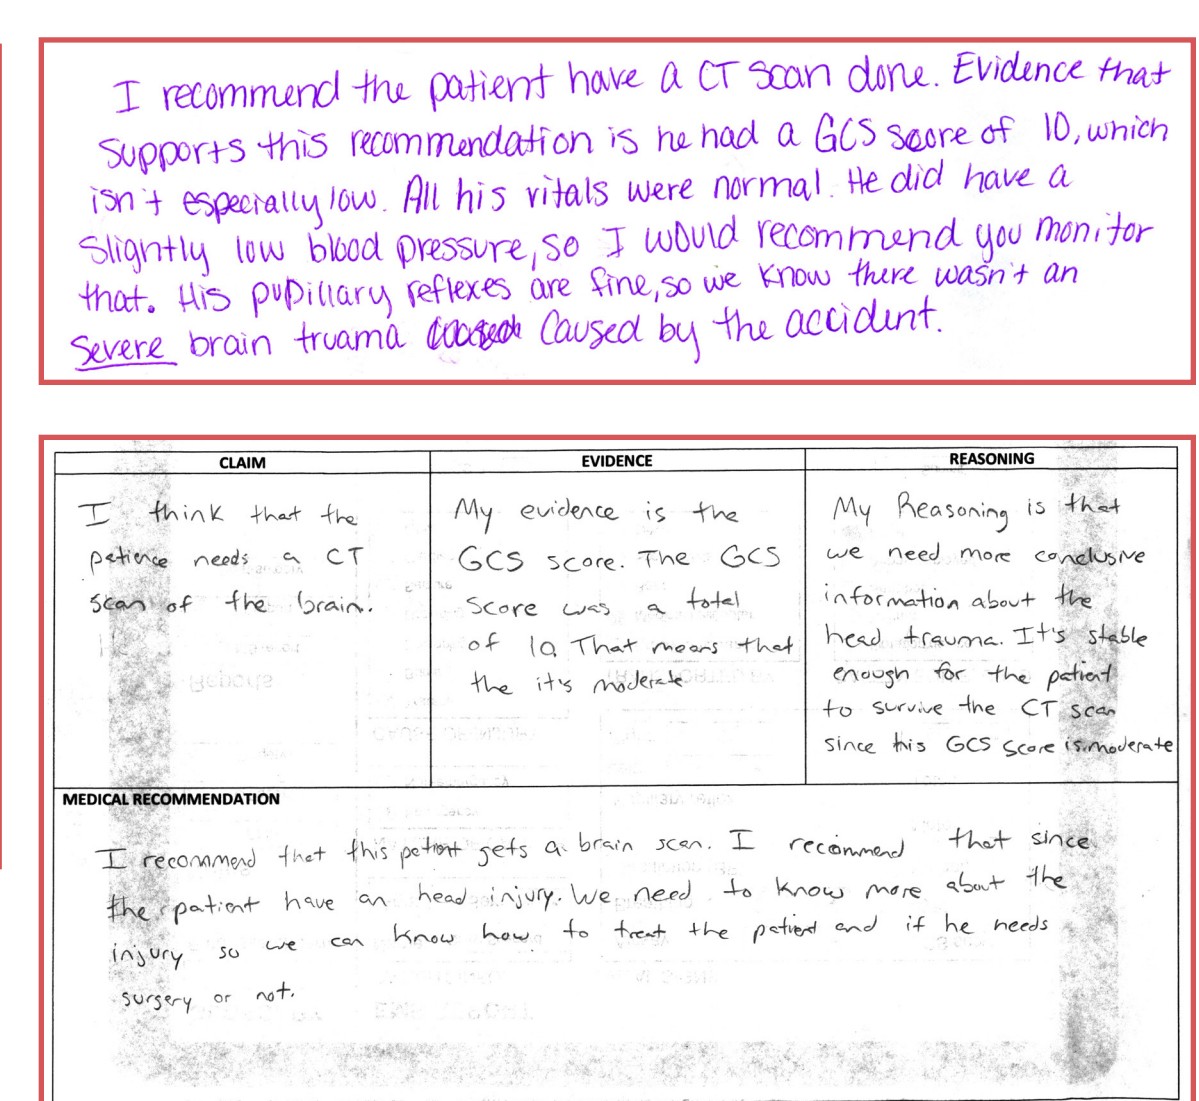 I recommend the patient have a CT scan done. Evidence that
supports this recommendation is he had a GCS score of 10, which
isn't especially low. All his vitals were normal. He did have a
Slightly low blood pressure, so I would recommend you monitor
that. His pupillary reflexes are fine, so we know there wasn't an
severe brain truama caused by the accident.
CLAIM
I think that the
patience needs a CT
scan of the brain.
EVIDENCE
My evidence is the
GCS score. The GCS
score was a total
of 10 That means that
the it's moderate
REASONING
My Reasoning is that
we need more conclusive
information about the
head trauma. It's stable
enough for the patient
to survive the CT scan
since his GCS score is moderate
MEDICAL RECOMMENDATION
I recommend that this patient gets a brain scan. I recimmend that since
the patient have an head injury. We need to know more about the
injury so we can know how to treat the patient and if he needs
surgery or not.